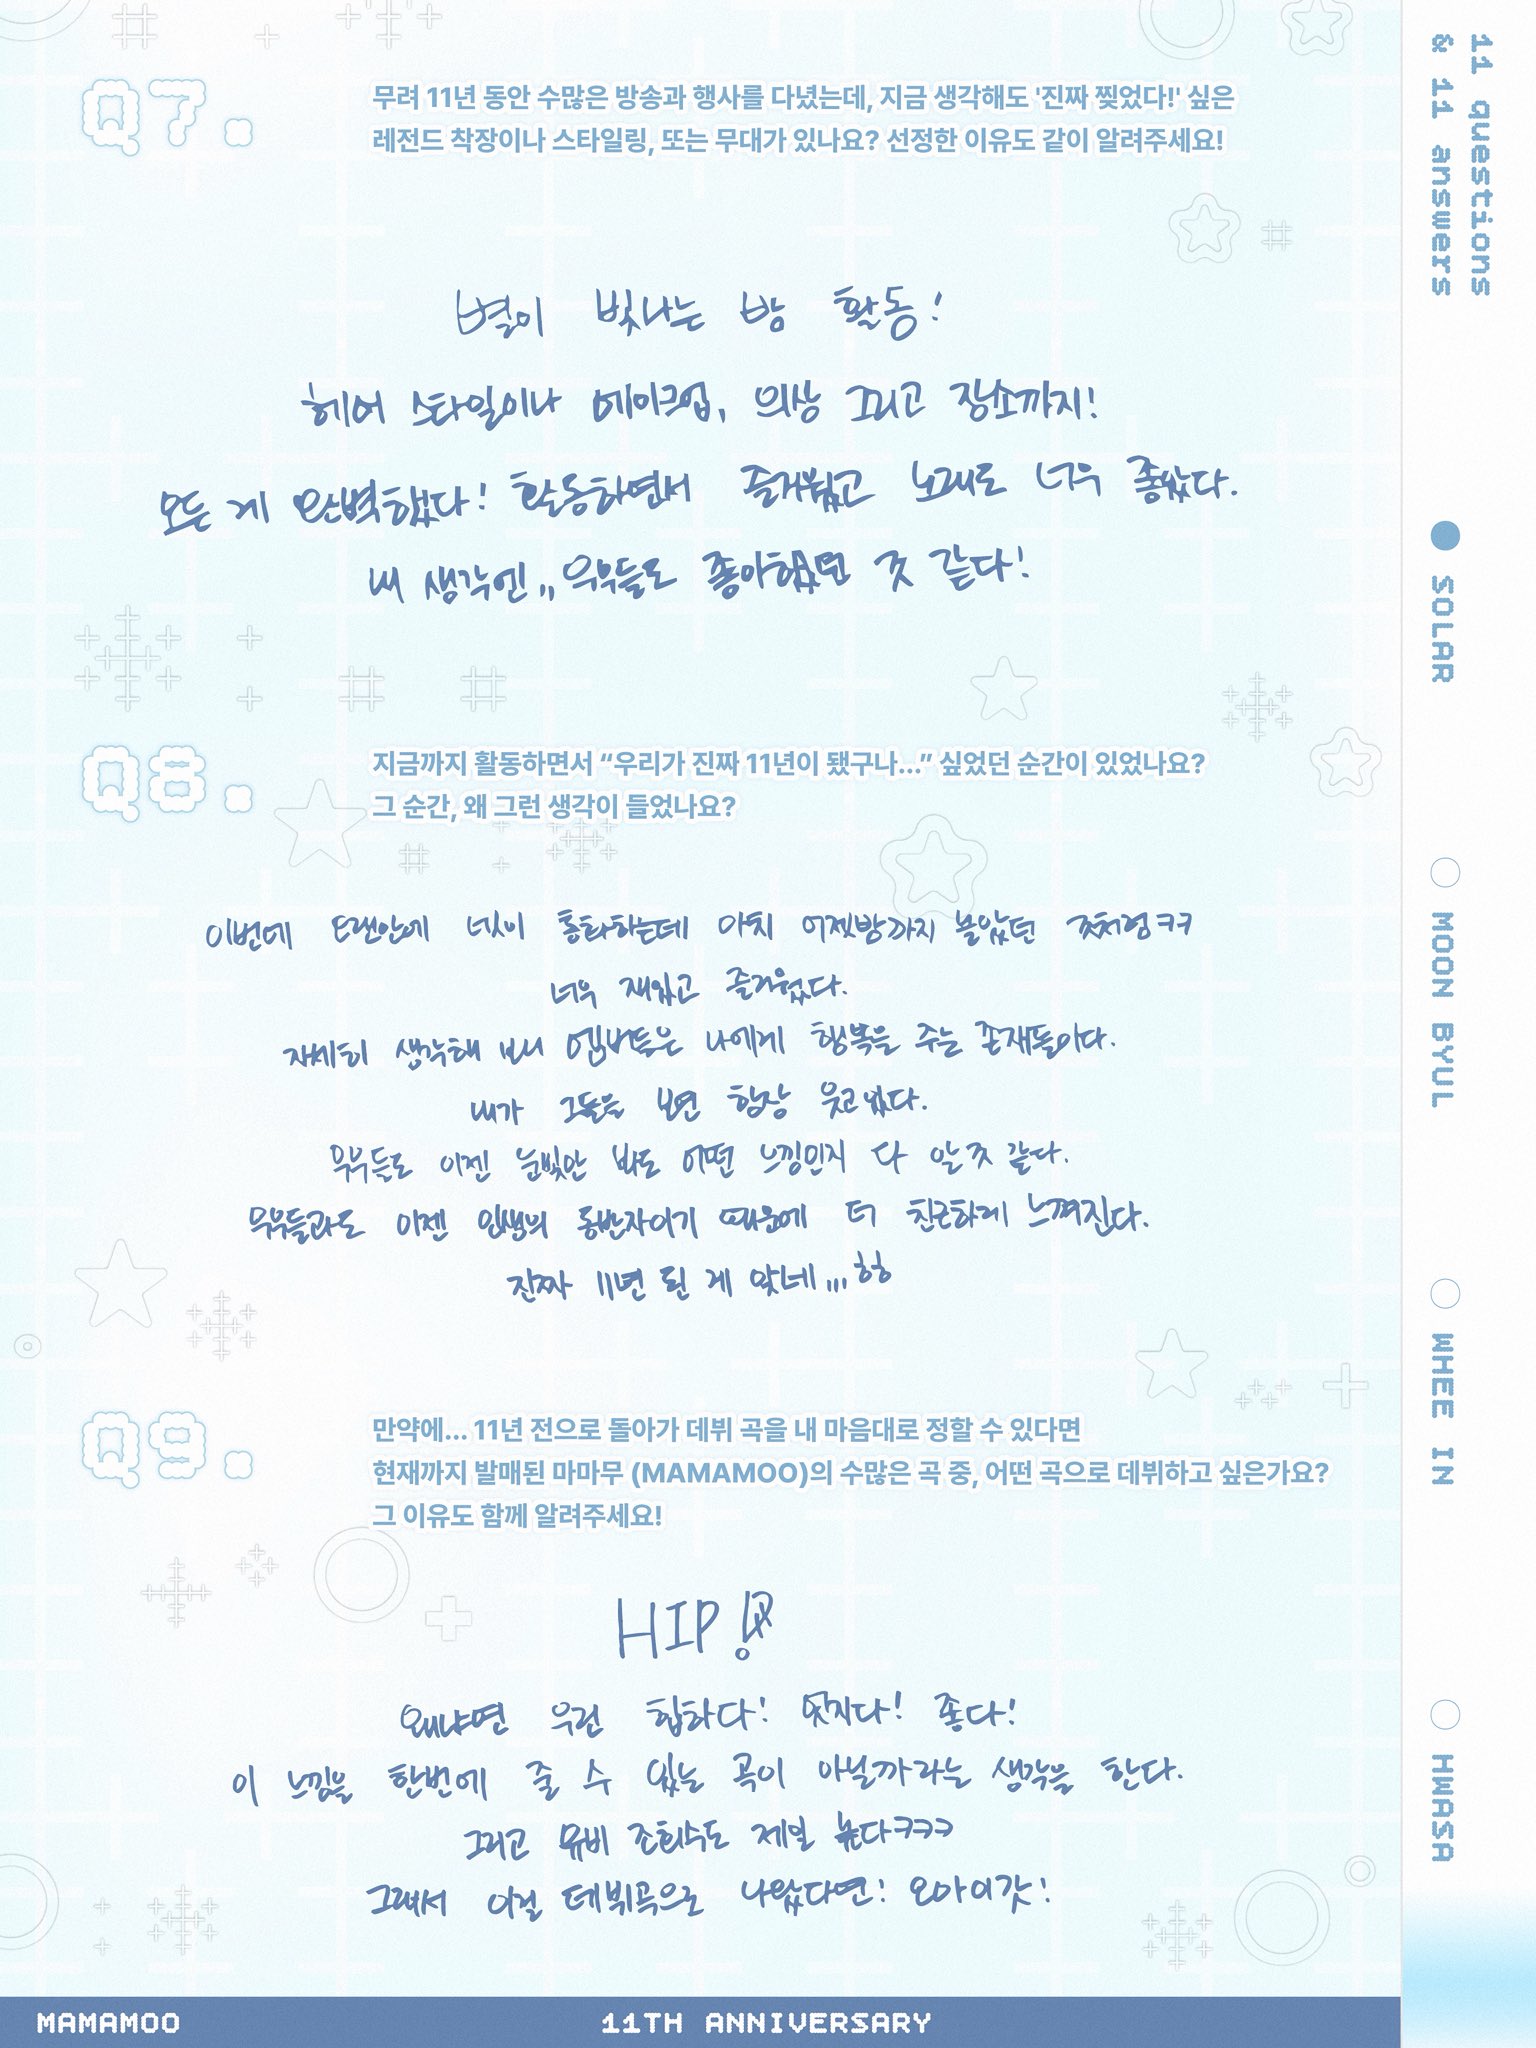 11 questions
& 11 answers
Q7.
무려 11년 동안 수많은 방송과 행사를 다녔는데, 지금 생각해도 '진짜 찢었다!' 싶은
레전드 착장이나 스타일링, 또는 무대가 있나요? 선정한 이유도 같이 알려주세요!
별이 빛나는 밤 활동!
헤어 스타일이나 메이크업, 의상 그리고 장소까지!
모든 게 완벽했다! 활동하면서 즐거웠고 노래도 너무 좋았다.
내 생각엔,, 무무들도 좋아했던 것 같다!
Q8.
지금까지 활동하면서 “우리가 진짜 11년이 됐구나...” 싶었던 순간이 있었나요?
그 순간, 왜 그런 생각이 들었나요?
이번에 오랜만에 넷이 통화하는데 마치 어젯밤까지 놀았던 것처럼 ㅋㅋ
너무 재밌고 즐거웠다.
자세히 생각해 보니 멤버들은 나에게 행복을 주는 존재들이다.
내가 그들을 보면 항상 웃고 있다.
무무들도 이젠 눈빛만 봐도 어떤 느낌인지 다 알 것 같다.
무무들과도 이젠 인생의 동반자이기 때문에 더 친근하게 느껴진다.
진짜 11년 된 게 맞네,,, ㅎㅎ
Q9.
만약에... 11년 전으로 돌아가 데뷔 곡을 내 마음대로 정할 수 있다면
현재까지 발매된 마마무 (MAMAMOO)의 수많은 곡 중, 어떤 곡으로 데뷔하고 싶은가요?
그 이유도 함께 알려주세요!
HIP!
왜냐면 우린 힙하다! 멋지다! 좋다!
이 느낌을 한번에 줄 수 있는 곡이 아닐까라는 생각을 한다.
그리고 뮤비 조회수도 제일 높다ㅋㅋㅋ
그래서 이걸 데뷔곡으로 나왔다면! 오마이갓!
SOLAR
MOON BYUL
WHEE IN
HWASA
MAMAMOO
11TH ANNIVERSARY